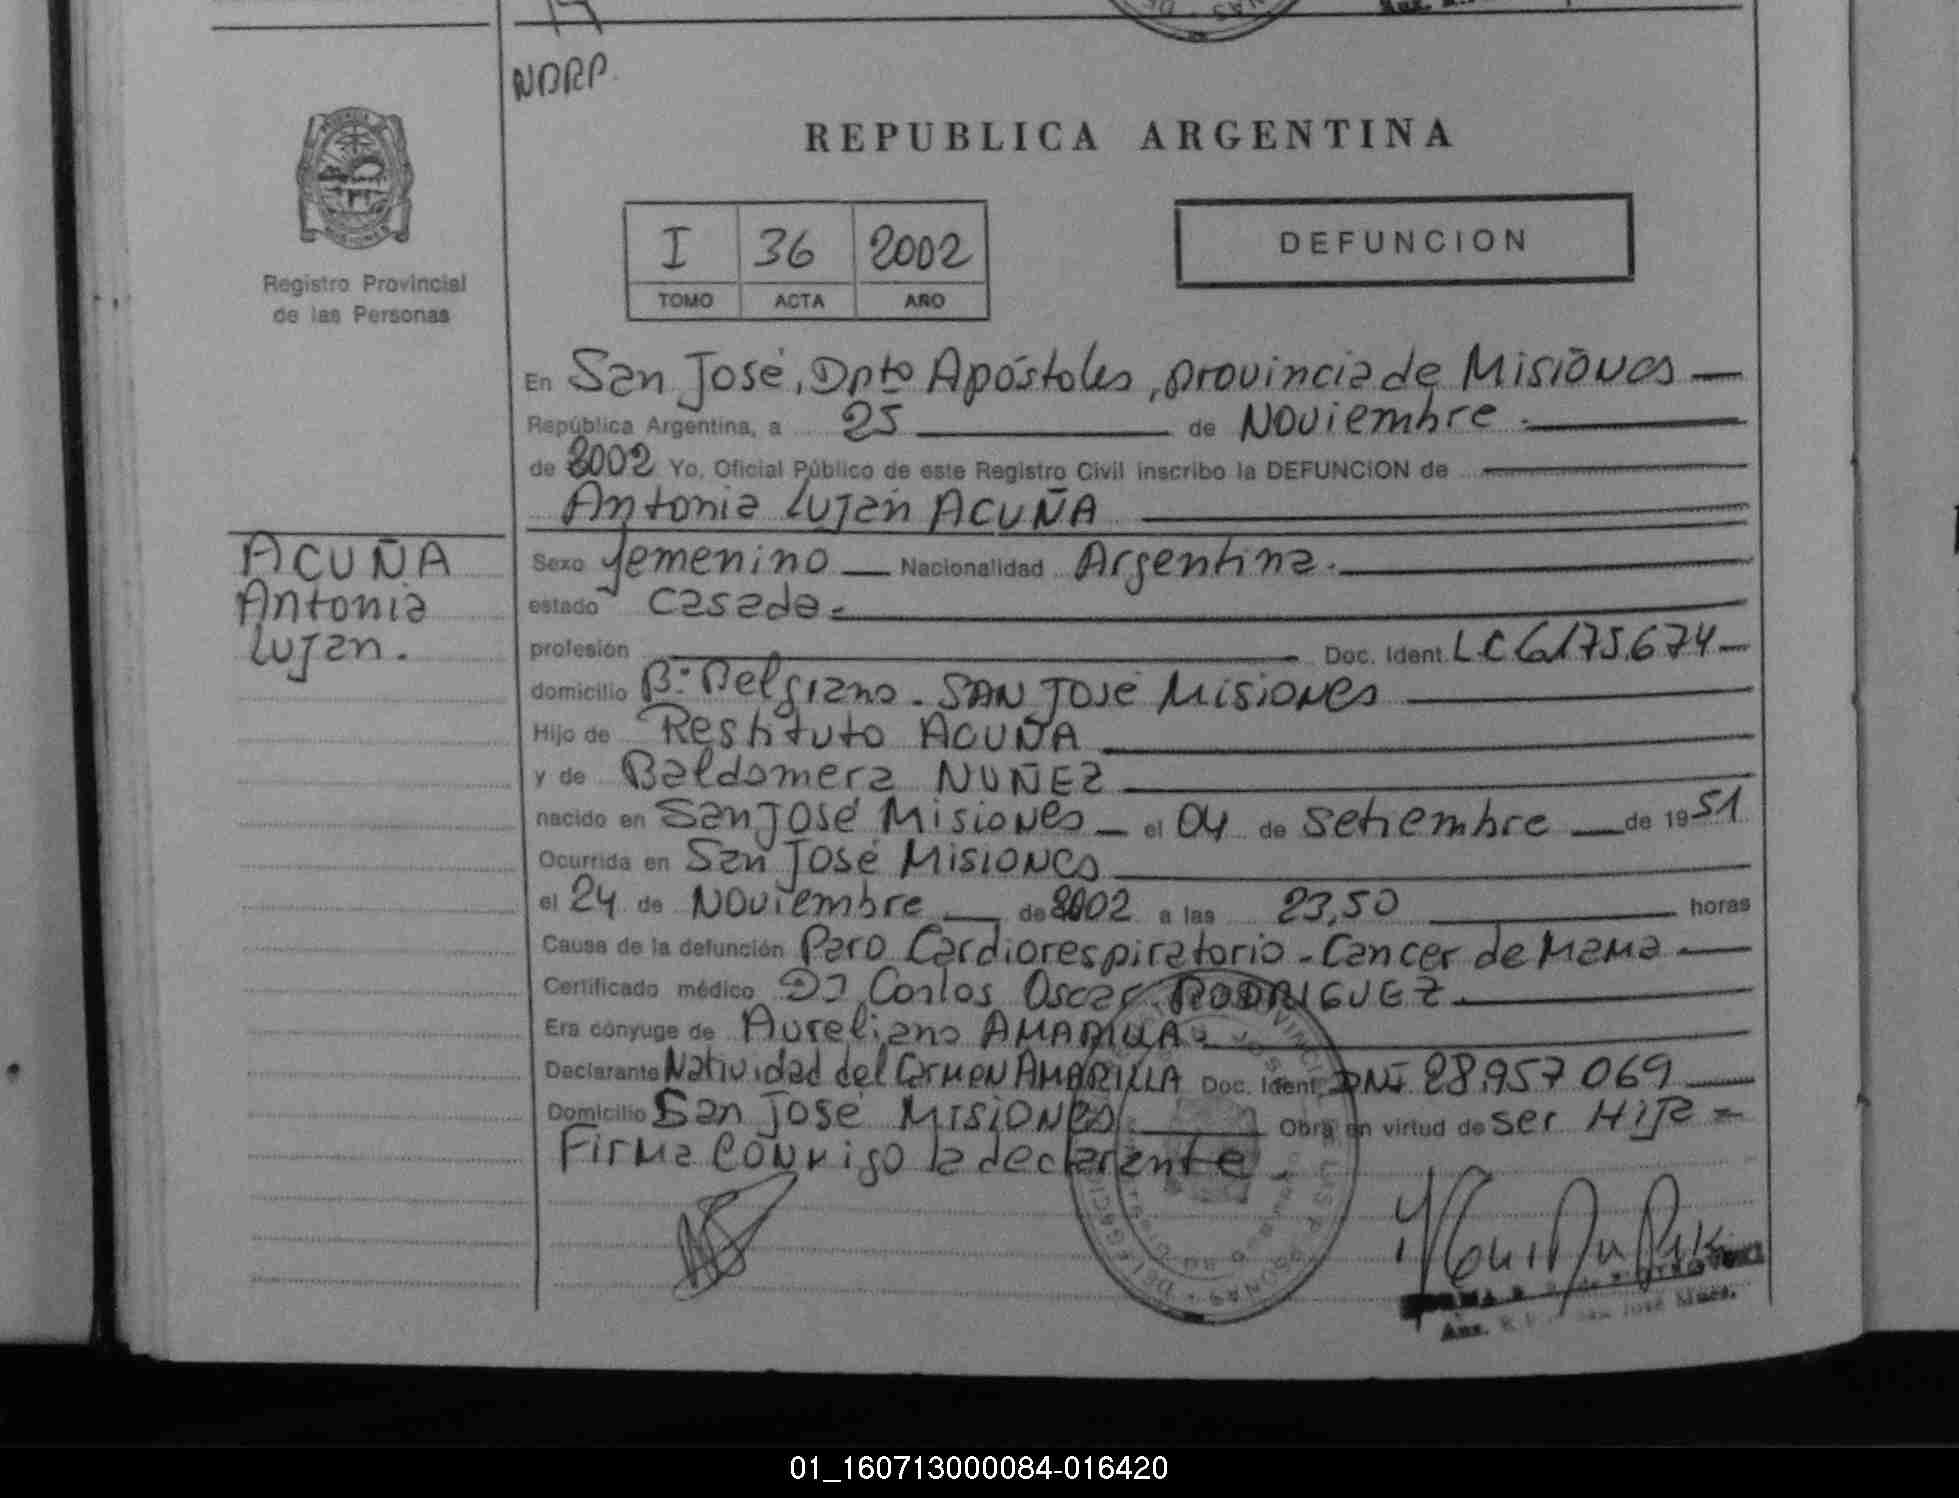 NDRP.
REPUBLICA ARGENTINA
I 36 2002
TOMO ACTA AÑO
DEFUNCION
Registro Provincial
de las Personas
En San José, Dpto Apóstoles, provincia de Misiones
República Argentina, a 25 de Noviembre
de 2002 Yo, Oficial Público de este Registro Civil inscribo la DEFUNCION de
Antonia Luján ACUÑA
ACUÑA
Antonia
Lujan.
Sexo femenino Nacionalidad Argentina.
estado casada.
profesión Doc. Ident. LC 6.175.674
domicilio Bº Belgrano - SAN JOSÉ Misiones
Hijo de Restituto ACUÑA
y de Baldomera NUÑEZ
nacido en San José Misiones el 04 de Setiembre de 1951
Ocurrida en San José Misiones
el 24 de Noviembre de 2002 a las 23,50 horas
Causa de la defunción Paro Cardiorespiratorio - Cancer de Mama
Certificado médico Dr Carlos Oscar RODRIGUEZ.
Era cónyuge de Aureliano AMARILLA
Declarante Natividad del Carmen AMARILLA Doc. Ident. DNI 28.957.069
Domicilio San José Misiones Obra en virtud de ser Hija
Firma conmigo la declarante.
Aux. San José Mnes.
01_160713000084-016420